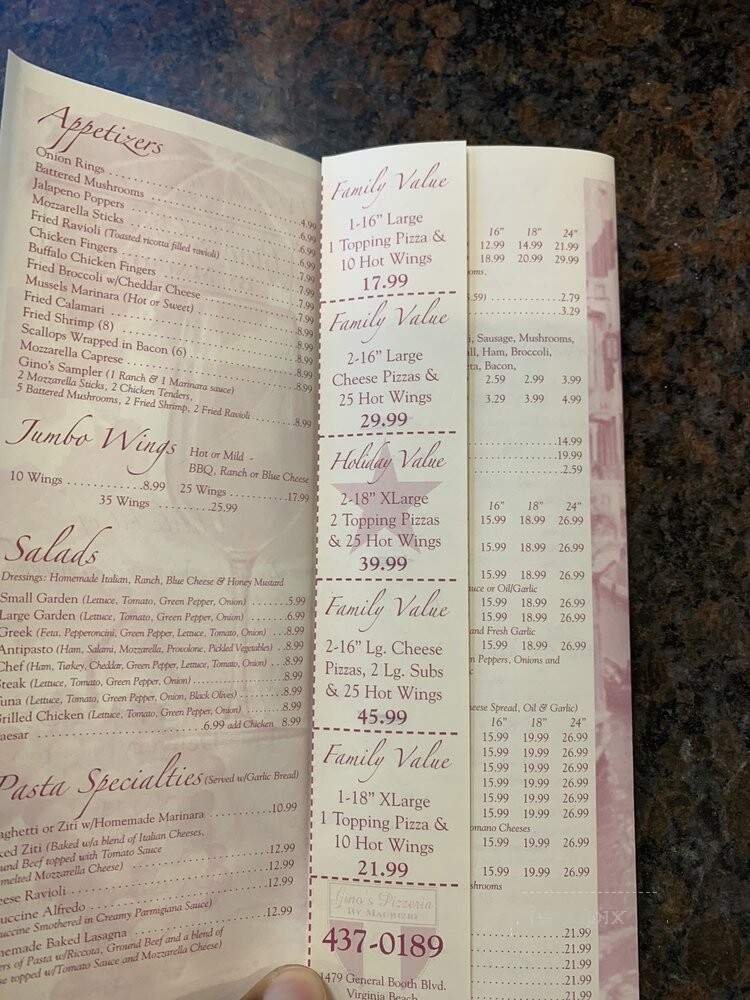 Appetizers
Onion Rings
Battered Mushrooms
Jalapeno Poppers
Mozzarella Sticks
Fried Ravioli (Toasted ricotta filled ravioli)
Chicken Fingers
Buffalo Chicken Fingers
Fried Broccoli w/Cheddar Cheese
Mussels Marinara (Hot or Sweet)
Fried Calamari
Fried Shrimp (8)
Scallops Wrapped in Bacon (6)
Mozzarella Caprese
Gino's Sampler (1 Ranch & 1 Marinara sauce)
2 Mozzarella Sticks, 2 Chicken Tenders,
5 Battered Mushrooms, 2 Fried Shrimp, 2 Fried Ravioli
4.99
6.99
6.99
6.99
7.99
7.99
7.99
7.99
8.99
8.99
8.99
8.99
8.99
8.99
Jumbo Wings Hot or Mild -
BBQ, Ranch or Blue Cheese
10 Wings 8.99 25 Wings 17.99
35 Wings 25.99
Salads
Dressings: Homemade Italian, Ranch, Blue Cheese & Honey Mustard
Small Garden (Lettuce, Tomato, Green Pepper, Onion) 5.99
Large Garden (Lettuce, Tomato, Green Pepper, Onion) 6.99
Greek (Feta, Pepperoncini, Green Pepper, Lettuce, Tomato, Onion) 8.99
Antipasto (Ham, Salami, Mozzarella, Provolone, Pickled Vegetables) 8.99
Chef (Ham, Turkey, Cheddar, Green Pepper, Lettuce, Tomato, Onion) 8.99
Steak (Lettuce, Tomato, Green Pepper, Onion) 8.99
una (Lettuce, Tomato, Green Pepper, Onion, Black Olives) 8.99
rilled Chicken (Lettuce, Tomato, Green Pepper, Onion) 8.99
aesar 6.99 add Chicken 8.99
Pasta Specialties (Served w/Garlic Bread)
aghetti or Ziti w/Homemade Marinara 10.99
ked Ziti (Baked w/a blend of Italian Cheeses,
und Beef topped with Tomato Sauce
melted Mozzarella Cheese) 12.99
eese Ravioli 12.99
uccine Alfredo 12.99
uccine Smothered in Creamy Parmigiana Sauce)
memade Baked Lasagna 12.99
ers of Pasta w/Riccota, Ground Beef and a blend of
se topped w/Tomato Sauce and Mozzarella Cheese)
Family Value
1-16" Large
1 Topping Pizza &
10 Hot Wings
17.99
Family Value
2-16" Large
Cheese Pizzas &
25 Hot Wings
29.99
Holiday Value
2-18" XLarge
2 Topping Pizzas
& 25 Hot Wings
39.99
Family Value
2-16" Lg. Cheese
Pizzas, 2 Lg. Subs
& 25 Hot Wings
45.99
Family Value
1-18" XLarge
1 Topping Pizza &
10 Hot Wings
21.99
Gino's Pizzeria
By Maurizio
437-0189
1479 General Booth Blvd.
Virginia Beach
16" 18" 24"
12.99 14.99 21.99
18.99 20.99 29.99
oms,
3.59) 2.79
3.29
i, Sausage, Mushrooms,
ll, Ham, Broccoli,
eta, Bacon,
2.59 2.99 3.99
3.29 3.99 4.99
14.99
19.99
2.59
16" 18" 24"
15.99 18.99 26.99
15.99 18.99 26.99
15.99 18.99 26.99
uce or Oil/Garlic
15.99 18.99 26.99
15.99 18.99 26.99
and Fresh Garlic
15.99 18.99 26.99
n Peppers, Onions and
c
eese Spread, Oil & Garlic)
16" 18" 24"
15.99 19.99 26.99
15.99 19.99 26.99
15.99 19.99 26.99
15.99 19.99 26.99
15.99 19.99 26.99
15.99 19.99 26.99
omano Cheeses
15.99 19.99 26.99
15.99 19.99 26.99
shrooms
21.99
21.99
21.99
21.99
21.99